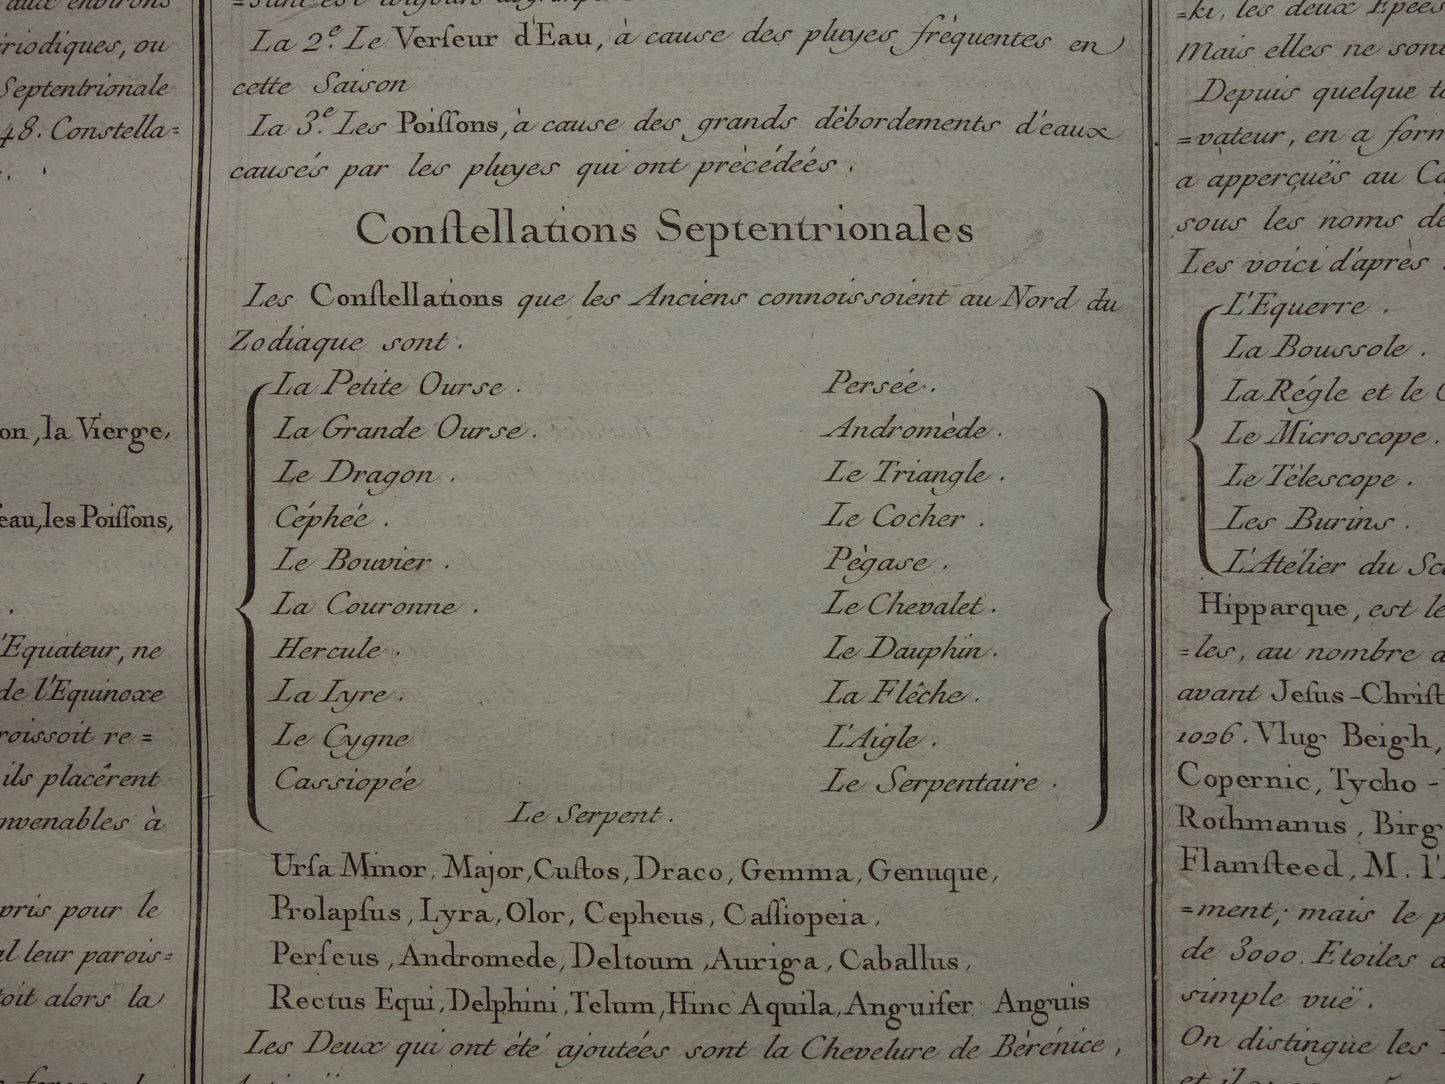 aux environs
ériodiques, ou
Septentrionale
48. Constella=
on, la Vierge,
eau, les Poiſſons,
l'Equateur, ne
de l'Equinoxe
roissoit re=
ils placêrent
nvenables à
pris pour le
al leur parois=
toit alors la
La 2e. Le Verſeur d'Eau, à cause des pluyes frèquentes en
cette Saison
La 3e. Les Poiſſons, à cause des grands dèbordements d'eaux
causés par les pluyes qui ont prècédeés.
Conſtellations Septentrionales
Les Conſtellations que les Anciens connoissoient au Nord du
Zodiaque sont.
La Petite Ourse.
La Grande Ourse.
Le Dragon.
Céphée.
Le Bouvier.
La Couronne.
Hercule.
La Lyre.
Le Cygne
Cassiopée
Persée.
Andromède.
Le Triangle.
Le Cocher.
Pègase.
Le Chevalet.
Le Dauphin.
La Flêche.
L'Aigle.
Le Serpentaire.
Le Serpent.
Urſa Minor, Major, Cuſtos, Draco, Gemma, Genuque,
Prolapſus, Lyra, Olor, Cepheus, Caſſiopeia,
Perſeus, Andromede, Deltoum, Auriga, Caballus,
Rectus Equi, Delphini, Telum, Hinc Aquila, Anguifer Anguis
Les Deux qui ont èté ajoutées sont la Chevelure de Bèrénice,
=ki, les deux Epées
Mais elles ne sont
Depuis quelque
=vateur, en a form
a apperçuës au
sous les noms de
Les voici d'après
L'Equerre.
La Boussole.
La Régle et le
Le Microscope.
Le Tèlescope.
Les Burins.
L'Atélier du Sc
Hipparque, est le
=les, au nombre
avant Jeſus-Chriſt
1026. Vlug Beigh,
Copernic, Tycho-
Rothmanus, Birg
Flamſteed, M. l'
=ment; mais le p
de 3000. Etoiles
simple vuë.
On distingue les